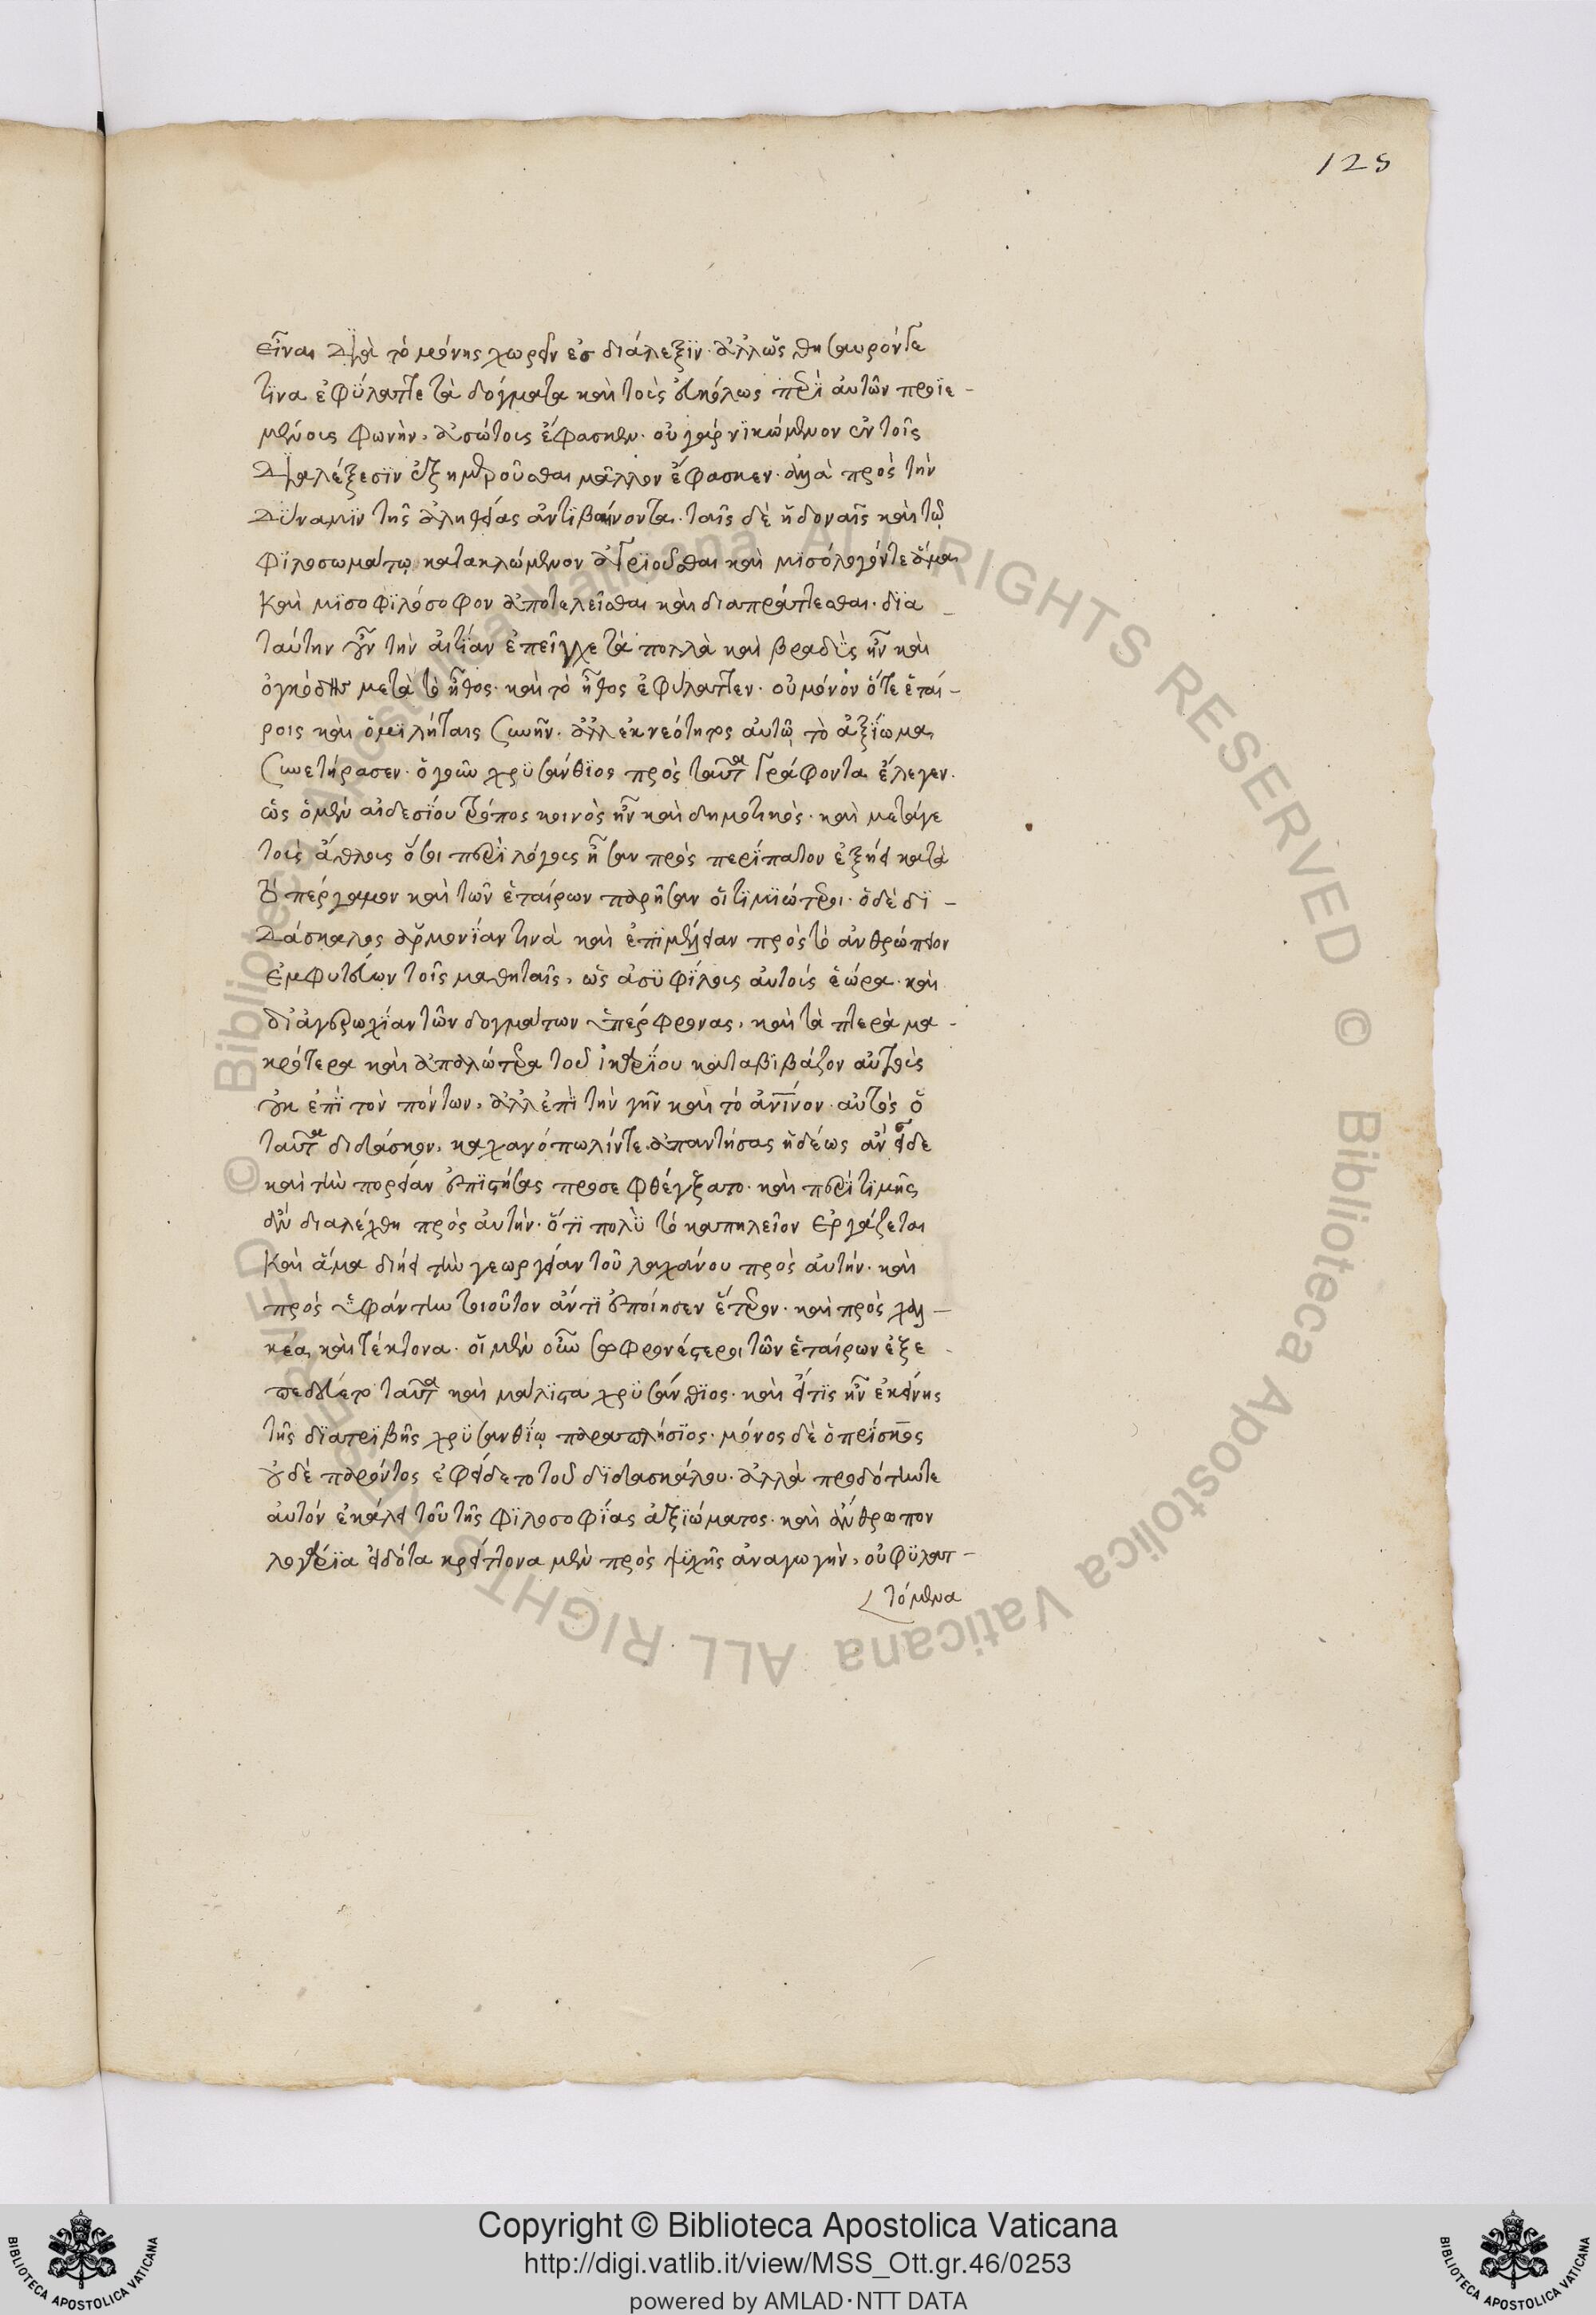 125
εἶναι διὰ τὸ μόνης χωρεῖν ἐσ διάλεξϊν· ἀλλ' ὡς θησαυρόν τε
τϊνα ἐφϋλαττε τὰ δόγματα καὶ τοὺς εὐκόλως περὶ αὐτῶν προϊε-
μένους φωνὴν, ἀσώτους ἔφασκεν· οὐ γὰρ νϊκώμενον ἐν τοῖς
διαλέξεσϊν ἐξημεροῦσθαι μᾶλλον ἔφασκεν· ἀλλὰ πρὸς τὴν
δϋναμϊν τῆς ἀληθείας ἀντϊβαίνοντα· ταῖς δὲ ἡδοναῖς καὶ τῷ
φϊλοσωμάτῳ κατακλώμενον ἀγρϊοῦσθαι καὶ μϊσόλογόν τε ἅμα
καὶ μϊσοφϊλόσοφον ἀποτελεῖσθαι καὶ διαπράττεσθαι· δϊα
ταύτην οὖν τὴν αἰτϊαν ἐπεῖχε τὰ πολλὰ καὶ βραδὺς ἦν καὶ
ὀγκόδης μετὰ τὸ ἦθος· καὶ τὸ ἦθος ἐφύλαττεν· οὐ μόνον ὅτε ἑταί-
ροις καὶ ὁμϊλήταις συνῆν· ἀλλ' ἐκ νεότητος αὐτῷ τὸ ἀξϊωμα
συνετήρασεν· ὁ γοῦν χρϋσάνθϊος πρὸς ταῦτα γράφοντα ἔλεγεν·
ὡς ὁ μὲν αἰδεσϊου τρόπος κοινὸς ἦν καὶ δημοτικὸς· καὶ μετάγε
τοὺς ἄθλους ὅσοι περὶ λόγους ἦσαν πρὸς περϊπατον ἐξήει κατὰ
τὸ πέργαμον καὶ τῶν ἑταίρων παρῆσαν οἱ τϊμϊώτεροι· ὁ δὲ δϊ-
δάσκαλος ἁρμονϊαν τινὰ καὶ ἐπϊμέλειαν πρὸς τὸ ἀνθρώπειον
ἐμφυτεύων τοῖς μαθηταῖς, ὡς ἀσϋφϊλους αὐτοὺς ἑώρα· καὶ
δι' ἀγερωχϊαν τῶν δογμάτων ὑπέρφρονας, καὶ τὰ πτερὰ μα-
κρότερα καὶ ἁπαλώτερα τοῦ ἰκαρϊου καταβϊβάζον αὐτοὺς
οὐκ ἐπϊ τὸν πόντων, ἀλλ' ἐπϊ τὴν γῆν καὶ τὸ ἀνϊνον· αὐτὸς ὁ
ταῦτα διδάσκων, λαχανόπωλίν τε ἀπαντήσας ἡδέως ἂν εἶδε
καὶ τὴν πορείαν ἐπϊστήσας προσεφθέγξατο· καὶ περὶ τϊμῆς
ἂν διαλέχθη πρὸς αὐτήν· ὅτϊ πολϋ τὸ καπηλεῖον ἐργάζεται
καὶ ἅμα διήει τὴν γεωργείαν τοῦ λαχάνου πρὸς αὐτήν· καὶ
πρὸς ὑφάντην τοιοῦτον ἄντϊ ἐποίησεν ἕτερον· καὶ πρὸς χαλ-
κέα καὶ τέκτονα· οἱ μὲν οὖν σωφρονέστεροι τῶν ἑταίρων ἐξε
πεδεύετο ταῦτα καὶ μάλϊστα χρϋσάνθϊος· καὶ εἴτϊς ἦν ἐκείνης
τῆς δϊατρϊβῆς χρϋσανθίῳ παραπλήσϊος· μόνος δὲ ὁ πρίσκος
οὐδὲ παρόντος ἐφείδετο τοῦ δϊδασκάλου· ἀλλὰ προδότην τε
αὐτόν ἐκάλει τοῦ τῆς φϊλοσοφίας ἀξϊώματος· καὶ ἄνθρωπον
λογάρϊα εἰδότα κρείττονα μὲν πρὸς ψϋχῆς ἀναγωγὴν, οὐ φϋλατ-
τόμενα
Copyright © Biblioteca Apostolica Vaticana
http://digi.vatlib.it/view/MSS_Ott.gr.46/0253
powered by AMLAD·NTT DATA